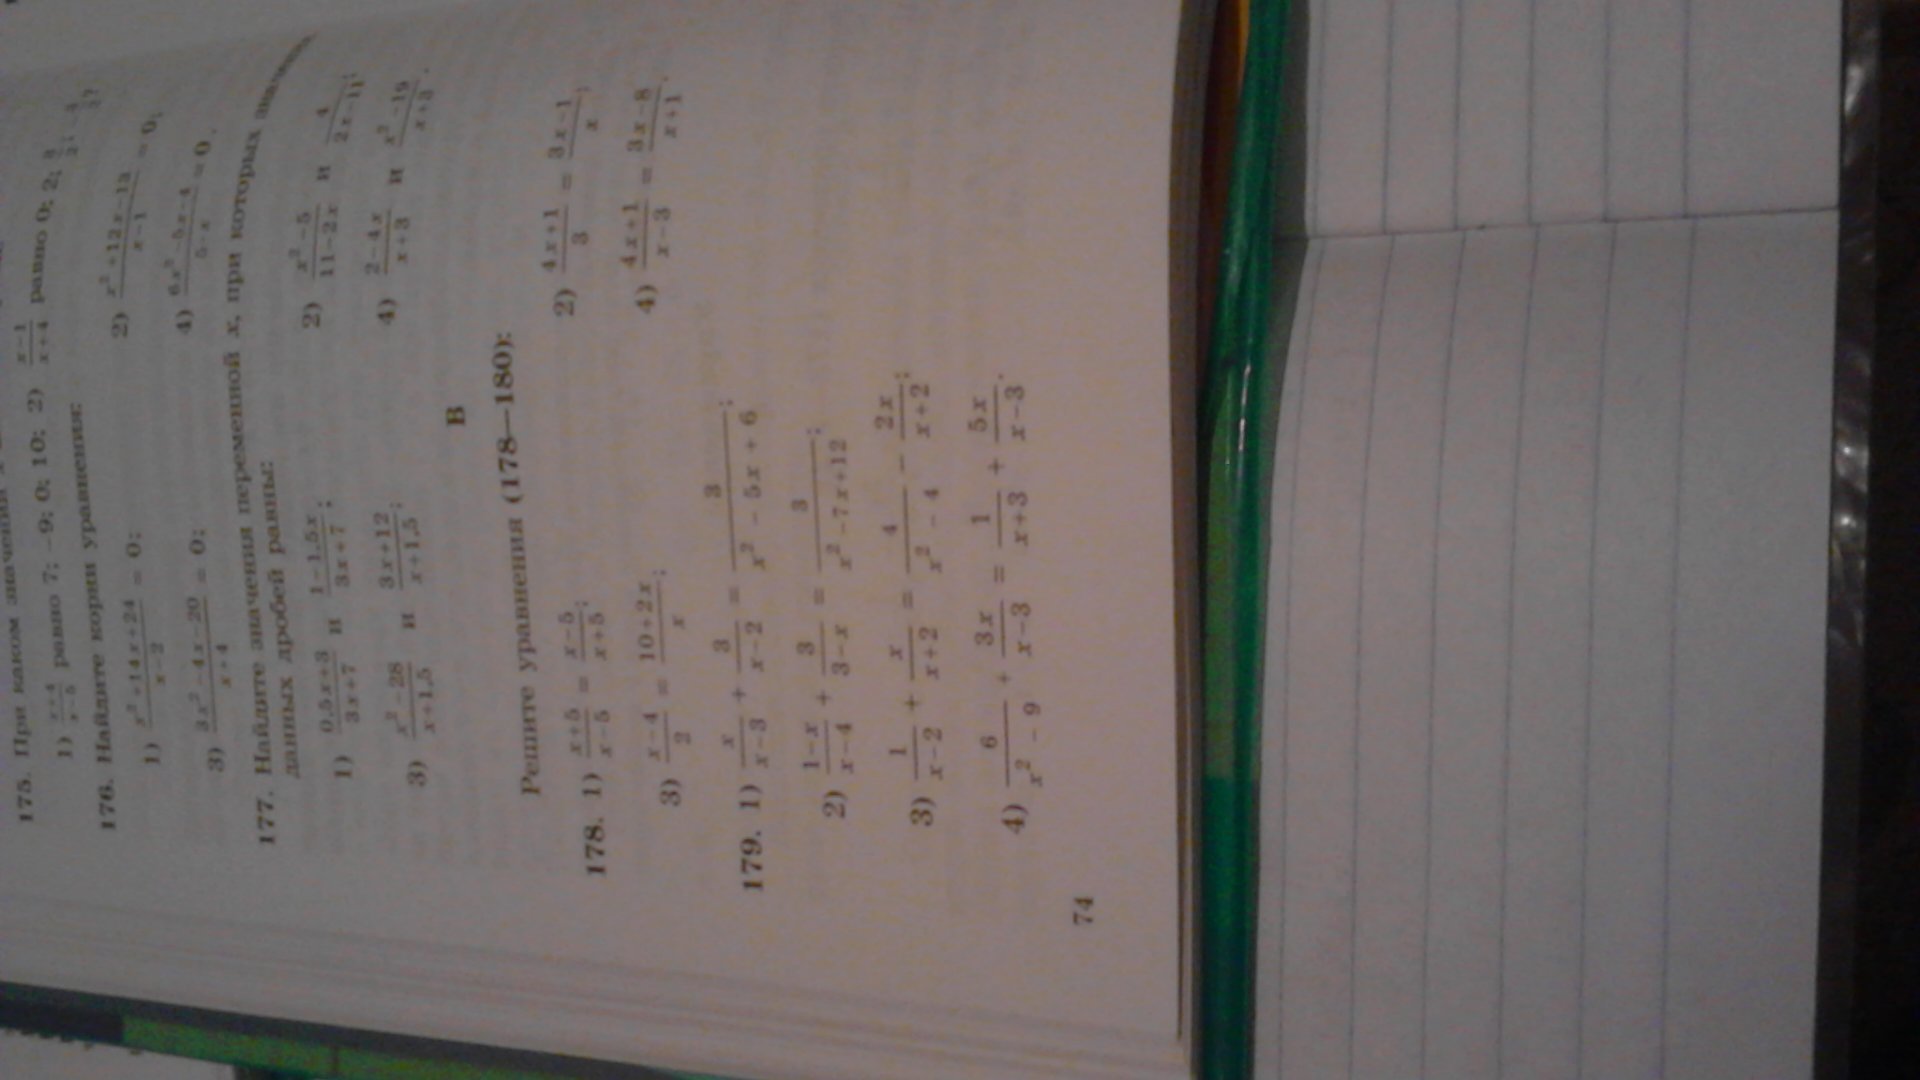 175. При каком значении
1) (x+4)/(x−5) равно 7; −9; 0; 10; 2) (x−1)/(x+4) равно 0; 2;
176. Найдите корни уравнения:
1) (x²+14x+24)/(x−2) = 0; 2) (x²+12x−13)/(x−1) = 0;
3) (3x²−4x−20)/(x+4) = 0; 4) (6x²−5x−4)/(5−x) = 0.
177. Найдите значения переменной x, при которых значения
данных дробей равны:
1) (0,5x+3)/(3x+7) и (1−1,5x)/(3x+7); 2) (x²−5)/(11−2x) и 4/(2x−11);
3) (x²−28)/(x+1,5) и (3x+12)/(x+1,5); 4) (2−4x)/(x+3) и (x²−19)/(x+3).
В
Решите уравнения (178—180):
178. 1) (x+5)/(x−5) = (x−5)/(x+5); 2) (4x+1)/3 = (3x−1)/x;
3) (x−4)/2 = (10+2x)/x; 4) (4x+1)/(x−3) = (3x−8)/(x+1).
179. 1) x/(x−3) + 3/(x−2) = 3/(x² − 5x + 6);
2) (1−x)/(x−4) + 3/(3−x) = 3/(x²−7x+12);
3) 1/(x−2) + x/(x+2) = 4/(x² − 4) − 2x/(x+2);
4) 6/(x² − 9) + 3x/(x−3) = 1/(x+3) + 5x/(x−3).
74